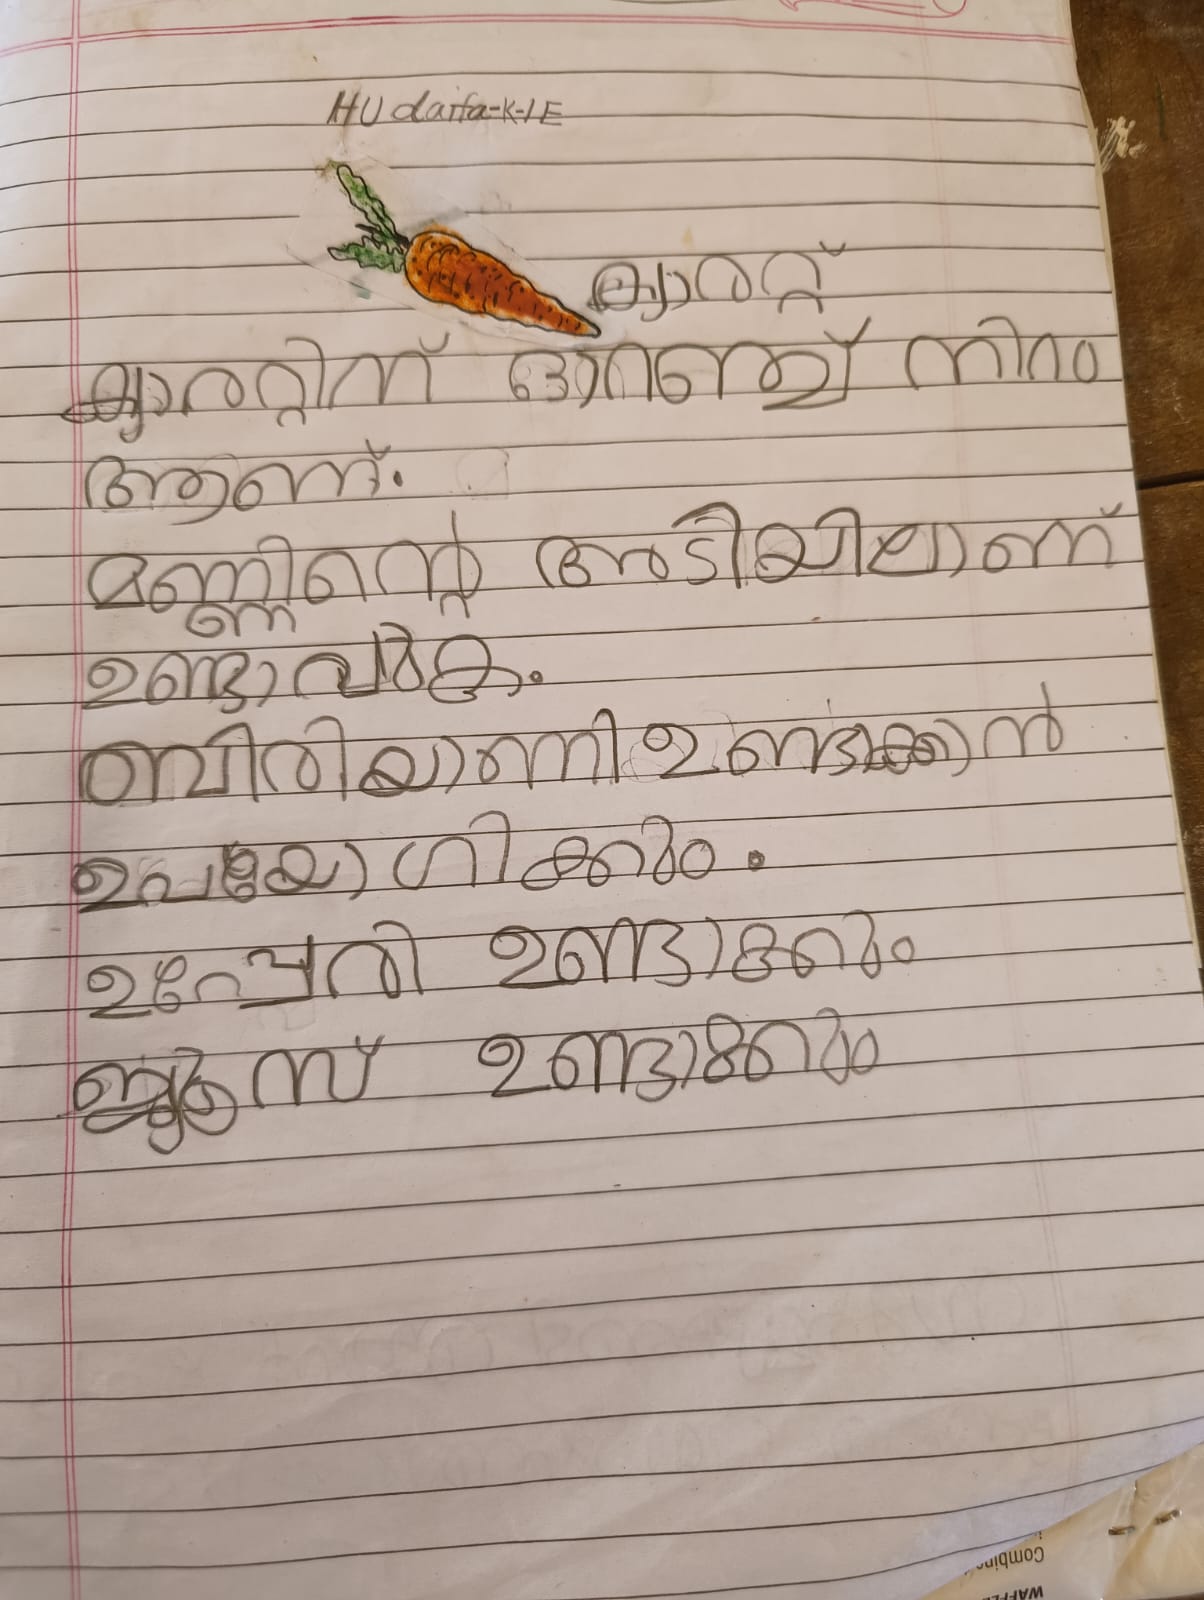 HUdaifa-K-1E
ക്യാരറ്റ്
ക്യാരറ്റിന് ഓറഞ്ച് നിറം
ആണ്.
മണ്ണിന്റെ അടിയിലാണ്
ഉണ്ടാവുക.
ബിരിയാണി ഉണ്ടാക്കാൻ
ഉപയോഗിക്കും.
ഉപ്പേരി ഉണ്ടാക്കും
ജ്യൂസ് ഉണ്ടാക്കും
Combin
WAFFL